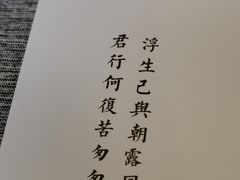 浮生已與朝露
君行何復苦匆匆